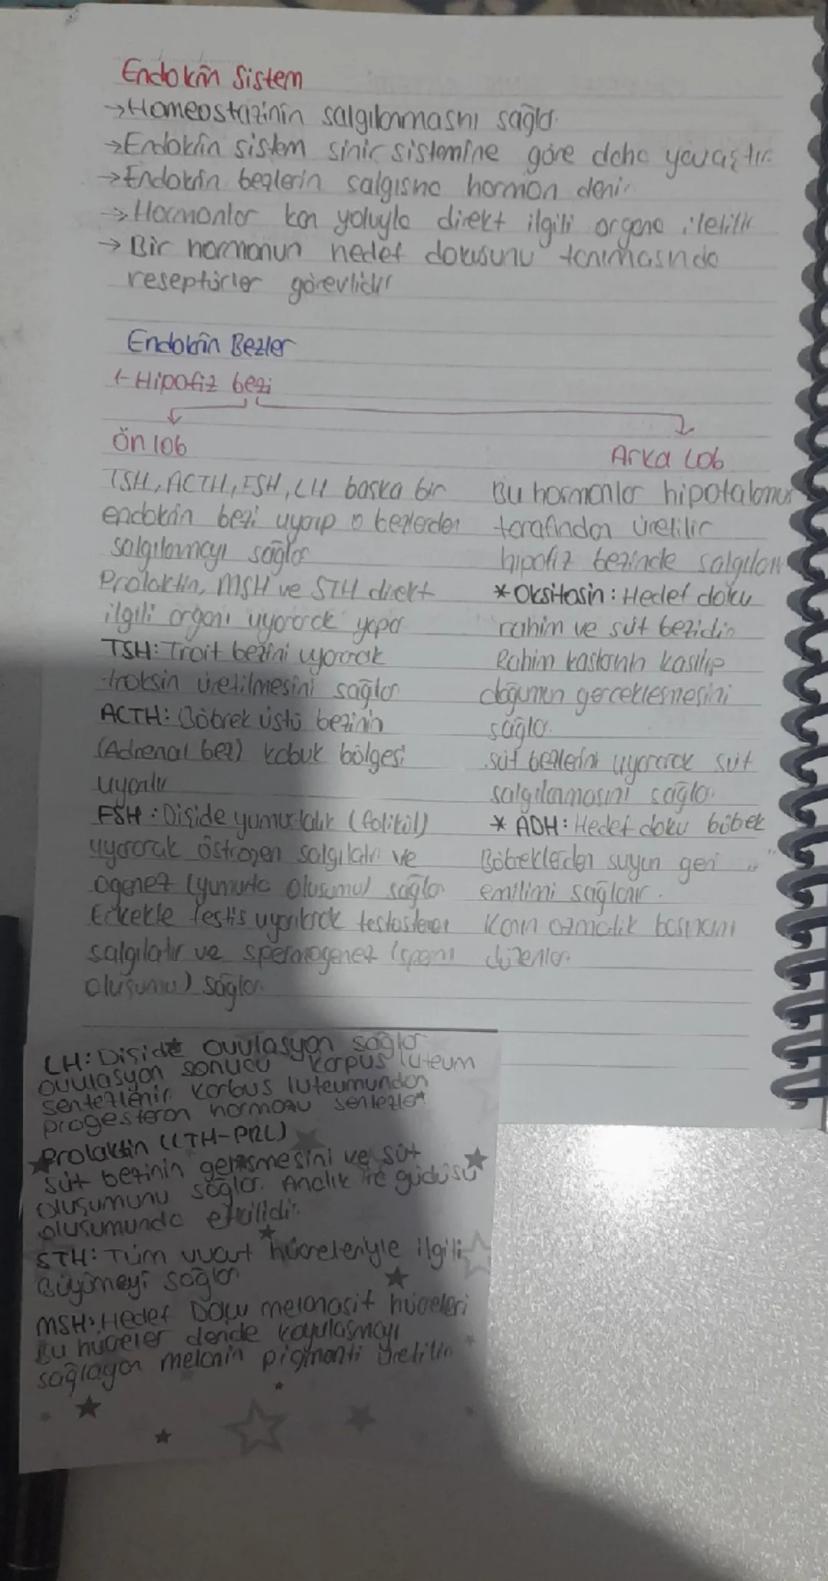 Endokrin Sistem
→Homeostazinin salgılanmasını sağlar.
→Endokrin sistem sinir sistemine göre daha yavaştır.
→Endokrin bezlerin salgısına hormon denir
→Hormonlar kan yoluyla direkt ilgili organa iletilir
→Bir hormonun hedef dokusunu tanımasında
reseptörler görevlidir
Endokrin Bezler
1-Hipofiz bezi
Ön lob
TSH, ACTH, FSH, LH başka bir
endokrin bezi uyarıp o bezlerden
salgılamayı sağlar
Prolaktin, MSH ve STH direkt
ilgili organı uyararak yapar
TSH: Troit bezini uyararak
troksin üretilmesini sağlar
ACTH: Böbrek üstü bezinin
(Adrenal bez) kabuk bölgesi
uyarılır
FSH: Dişide yumurtalık (folikül)
uyararak östrojen salgılatır ve
ogenez (yumurta oluşumu) sağlar
Erkekte testis uyarılarak testosteron
salgılatır ve spermatogenez (sperm
oluşumu) sağlar
Arka Lob
Bu hormonlar hipotalamus
tarafından üretilir
hipofiz bezinde salgılanır
*Oksitosin: Hedef doku
rahim ve süt bezidir
Rahim kaslarının kasılıp
doğumun gerçekleşmesini
sağlar.
süt bezlerini uyararak süt
salgılanmasını sağlar.
* ADH: Hedef doku böbrek
Böbreklerden suyun geri
emilimi sağlanır.
Kanın ozmotik basıncını
düzenler.
LH: Dişide ovulasyon sağlar
ovulasyon sonucu korpus luteum
sentezlenir. korbus luteumundan
progesteron hormonu sentezler
Prolaktin (LTH-PRL)
Süt bezinin gelişmesini ve süt
oluşumunu sağlar. Analık iç güdüsü
oluşumunda etkilidir.
STH: Tüm vücut hücreleriyle ilgili
Büyümeyi sağlar
MSH: Hedef Doku melanosit hücreleri
Bu hücreler deride koyulaşmayı
sağlayan melanin pigmenti üretilir